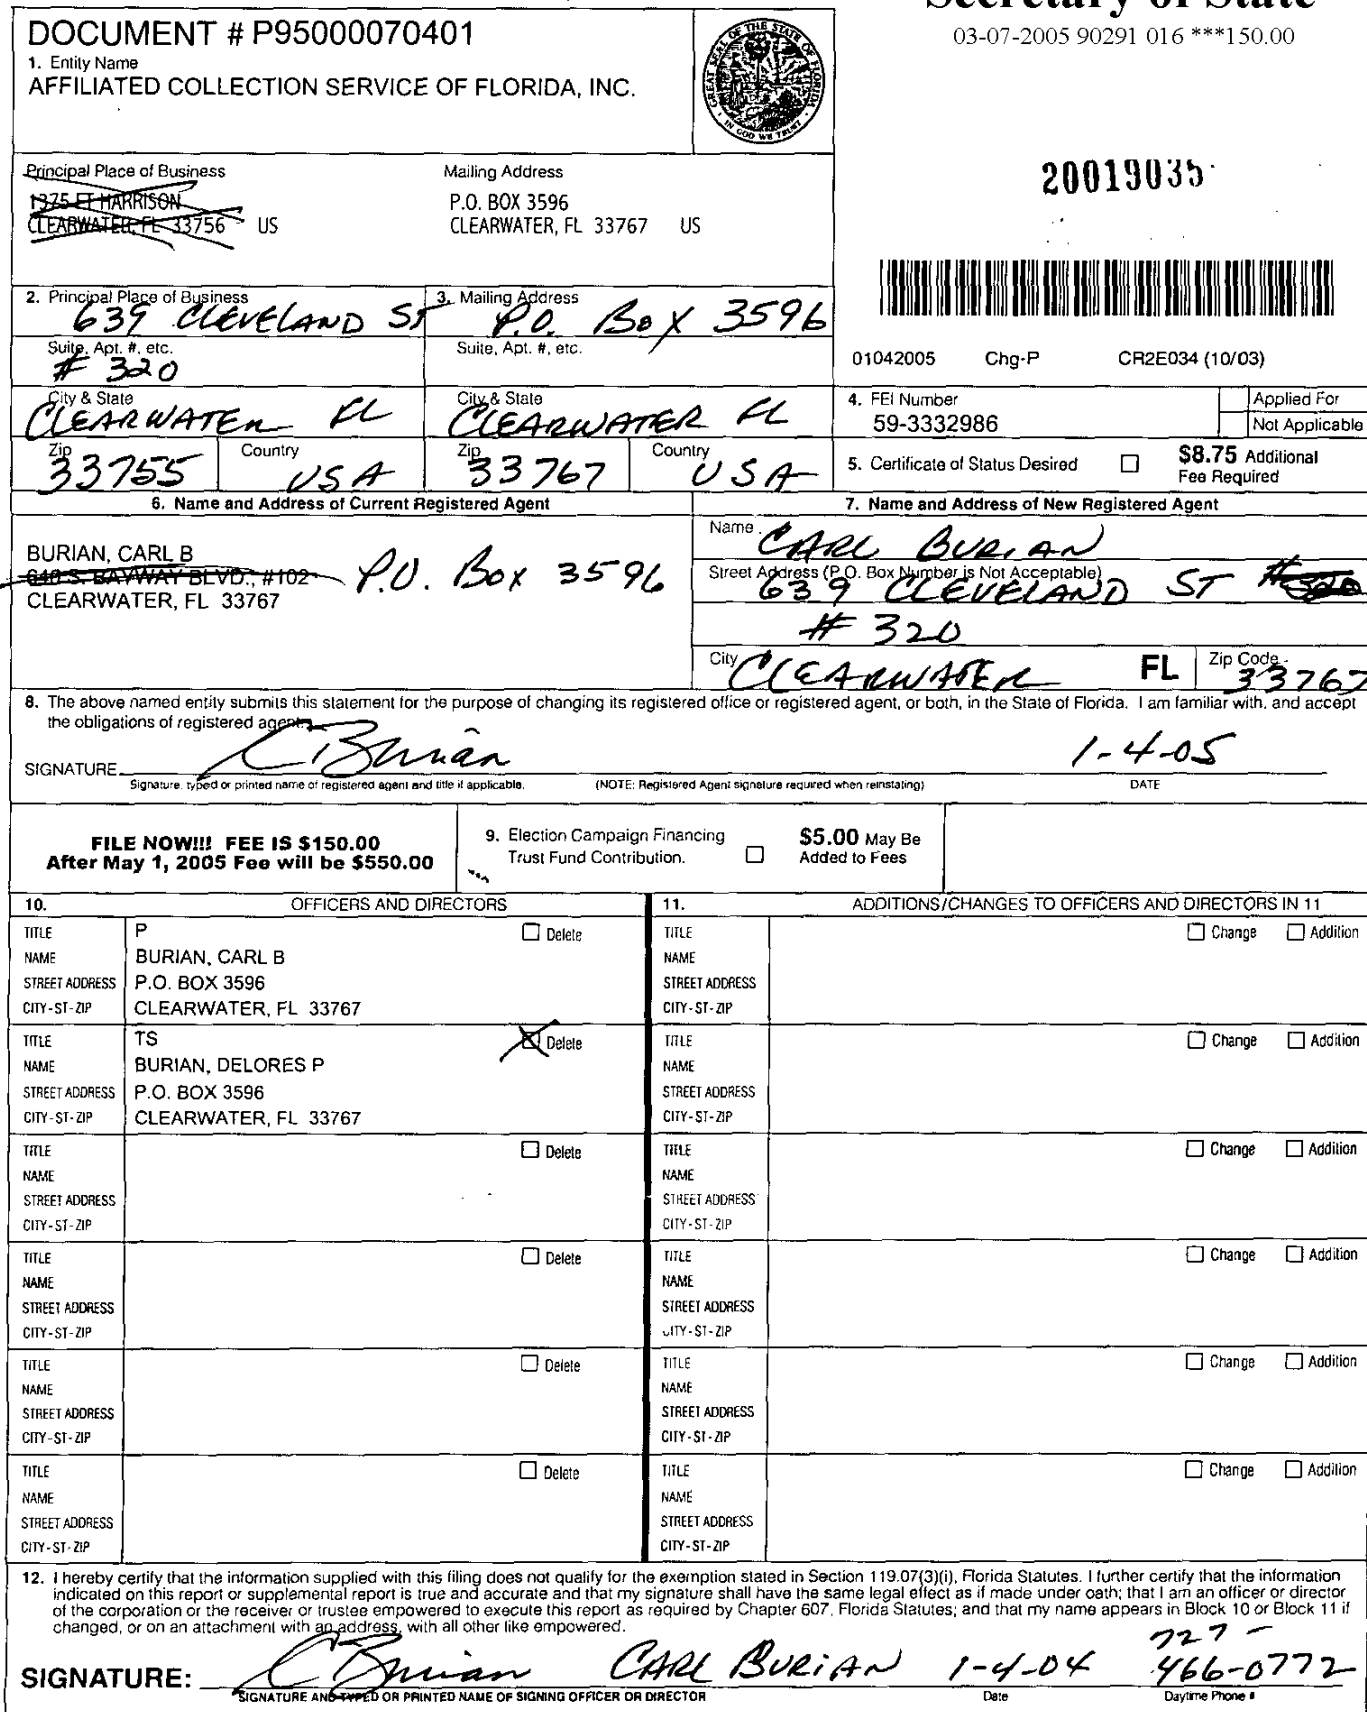 Secretary of State
03-07-2005 90291 016 ***150.00
DOCUMENT # P95000070401
1. Entity Name
AFFILIATED COLLECTION SERVICE OF FLORIDA, INC.
GREAT SEAL OF THE STATE OF FLORIDA
IN GOD WE TRUST
Principal Place of Business
1375 FT HARRISON
CLEARWATER, FL 33756 US
Mailing Address
P.O. BOX 3596
CLEARWATER, FL 33767 US
20019035
2. Principal Place of Business
639 CLEVELAND ST
3. Mailing Address
P.O. BOX 3596
Suite, Apt. #, etc.
# 320
Suite, Apt. #, etc.
01042005 Chg-P CR2E034 (10/03)
City & State
CLEARWATER FL
City & State
CLEARWATER FL
4. FEI Number
59-3332986
Applied For
Not Applicable
Zip
33755
Country
USA
Zip
33767
Country
USA
5. Certificate of Status Desired
$8.75 Additional
Fee Required
6. Name and Address of Current Registered Agent
BURIAN, CARL B
640 S. BAYWAY BLVD., #102
P.O. Box 3596
CLEARWATER, FL 33767
7. Name and Address of New Registered Agent
Name
CARL BURIAN
Street Address (P.O. Box Number is Not Acceptable)
639 CLEVELAND ST #320
# 320
City
CLEARWATER FL
Zip Code
33767
8. The above named entity submits this statement for the purpose of changing its registered office or registered agent, or both, in the State of Florida. I am familiar with, and accept
the obligations of registered agent.
SIGNATURE CBurian 1-4-05
Signature, typed or printed name of registered agent and title if applicable. (NOTE: Registered Agent signature required when reinstating) DATE
FILE NOW!!! FEE IS $150.00
After May 1, 2005 Fee will be $550.00
9. Election Campaign Financing
Trust Fund Contribution.
$5.00 May Be
Added to Fees
10. OFFICERS AND DIRECTORS
11. ADDITIONS/CHANGES TO OFFICERS AND DIRECTORS IN 11
TITLE P Delete
NAME BURIAN, CARL B
STREET ADDRESS P.O. BOX 3596
CITY-ST-ZIP CLEARWATER, FL 33767
TITLE Change Addition
NAME
STREET ADDRESS
CITY-ST-ZIP
TITLE TS Delete
NAME BURIAN, DELORES P
STREET ADDRESS P.O. BOX 3596
CITY-ST-ZIP CLEARWATER, FL 33767
TITLE Change Addition
NAME
STREET ADDRESS
CITY-ST-ZIP
TITLE Delete
NAME
STREET ADDRESS
CITY-ST-ZIP
TITLE Change Addition
NAME
STREET ADDRESS
CITY-ST-ZIP
TITLE Delete
NAME
STREET ADDRESS
CITY-ST-ZIP
TITLE Change Addition
NAME
STREET ADDRESS
CITY-ST-ZIP
TITLE Delete
NAME
STREET ADDRESS
CITY-ST-ZIP
TITLE Change Addition
NAME
STREET ADDRESS
CITY-ST-ZIP
TITLE Delete
NAME
STREET ADDRESS
CITY-ST-ZIP
TITLE Change Addition
NAME
STREET ADDRESS
CITY-ST-ZIP
12. I hereby certify that the information supplied with this filing does not qualify for the exemption stated in Section 119.07(3)(i), Florida Statutes. I further certify that the information
indicated on this report or supplemental report is true and accurate and that my signature shall have the same legal effect as if made under oath; that I am an officer or director
of the corporation or the receiver or trustee empowered to execute this report as required by Chapter 607, Florida Statutes; and that my name appears in Block 10 or Block 11 if
changed, or on an attachment with an address, with all other like empowered.
727-
SIGNATURE: CBurian CARL BURIAN 1-4-04 466-0772
SIGNATURE AND TYPED OR PRINTED NAME OF SIGNING OFFICER OR DIRECTOR Date Daytime Phone #